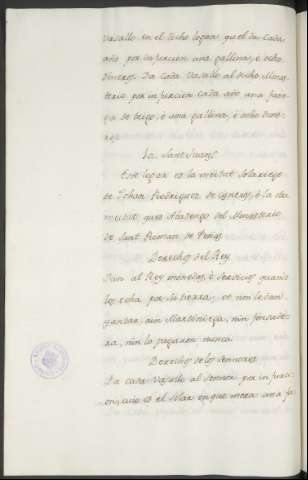 Vasallo en el dicho logar quel da cada
año por infurcion una gallina, è ocho
dineros. Da cada Vasallo al dicho Monas-
terio por infurcion cada año una fane-
ga de trigo, è una gallina, è ocho dine-
ros.
Sant Juans
Este logar es la meitat Solariego
de Johan Rodriguez de Cisneros, è la otra
meitat que es Abadengo del Monesterio
de Sant Roman de Peñas.
Derechos del Rey
Dan al Rey monedas, è servicios quando
los echa por su tierra, et non le dan
yantar, nin Martiniega, nin fonsade-
ra, nin la pagaron nunca.
Derechos de los Sennores
Da cada Vasallo al Sennor por infurci-
on, que es el Solar en que mora una fa